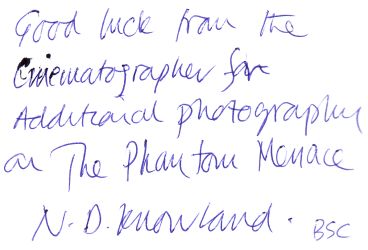 Good luck from the
Cinematographer for
Additional photography
on The Phantom Menace
N. D. Knowland. BSC